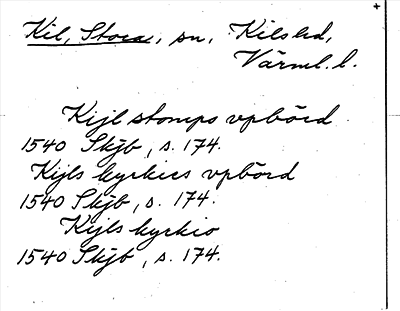 Kil, Stora, sn, Kils hd,
Värml. l.
Kijl stomps vpbörd
1540 Skjb, s. 174.
Kijls kyrkies vpbörd
1540 Skjb, s. 174.
Kijls kyrkio
1540 Skjb, s. 174.